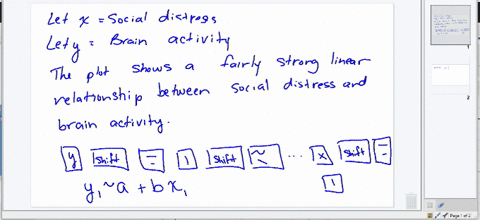 Let x = Social distress
Let y = Brain activity
The plot shows a fairly strong linear
relationship between social distress and
brain activity.
y shift = 1 shift ~ ... x shift =
1
y₁ ~ a + b x₁
1
2
Page 1 of 2